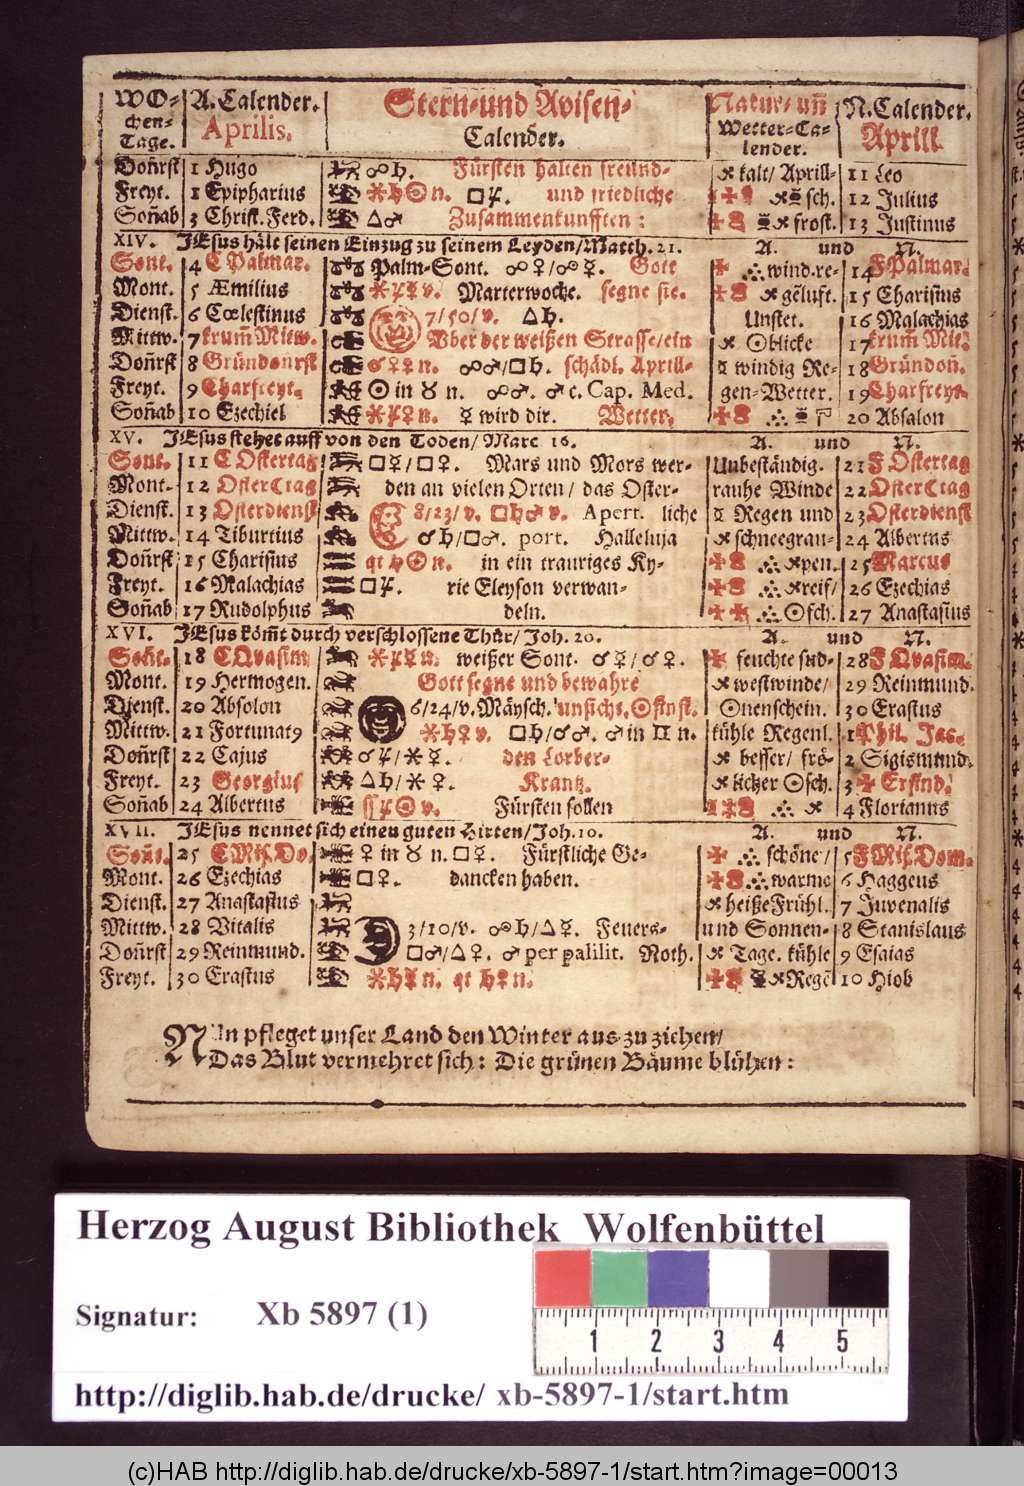 WO- A. Calender. Stern-und Avisen- Natur- uñ N. Calender.
chen- Aprilis. Calender. Wetter-Ca- Aprill
Tage. lender.
Doñrst 1 Hugo ☍ ♄. Fürsten halten freund- kalt/ Aprill- 11 Leo
Freyt. 1 Epipharius ♄ ☉ n. □ ♃. und friedliche sch. 12 Julius
Soñab 3 Christ. Ferd. △ ♂ Zusammenkunfften: frost. 13 Justinus
XIV. JEsus hält seinen Einzug zu seinem Leyden/Matth. 21. A. und N.
Sont. 4 C Palmar. Palm-Sont. ☍ ♀/☍ ☿. Gott wind.re- 14 F Palmar.
Mont. 5 Æmilius Marterwoche. segne sie. gẽluft. 15 Charisius
Dienst. 6 Cœlestinus 7/50/v. △ ♄. Unstet. 16 Malachias
Mittw. 7 krum̃ Mitw. Uber der weißen Strasse/ein ☉blicke 17 krum̃ Mit.
Doñrst 8 Gründonrst ☍ ♂/□ ♄. schädl. Aprill- windig Re- 18 Gründoñ.
Freyt. 9 Charfreyt. ☉ in ♉ n. ☍ ♂. ♂ c. Cap. Med. gen-Wetter. 19 Charfreyt.
Soñab 10 Ezechiel ☿ wird dir. Wetter. 20 Absalon
XV. JEsus stehet auff von den Toden/ Marc 16. A. und N.
Sont. 11 C Ostertag □ ☿/□ ♀. Mars und Mors wer- Unbeständig. 21 F Ostertag
Mont. 12 OsterCtag den an vielen Orten/ das Oster- rauhe Winde 22 OsterCtag
Dienst. 13 Osterdienst 8/23/v. □ ♄ ♂ v. Apert. liche Regen und 23 Osterdienst
Mittw. 14 Tiburtius ♂ ♄/□ ♂. port. Halleluja schneegrau- 24 Albertus
Doñrst 15 Charisius in ein trauriges Ky- pen. 25 Marcus
Freyt. 16 Malachias □ ♃. rie Eleyson verwan- reif/ 26 Ezechias
Soñab 17 Rudolphus deln. ☉sch. 27 Anastasius
XVI. JEsus kõmt durch verschlossene Thür/ Joh. 20. A. und N.
Soñt. 18 C Qvasim weißer Sont. feuchte süd- 28 F Qvasim.
Mont. 19 Hermogen. Gott segne und bewahre westwinde/ 29 Reinmund.
Dienst. 20 Absolon 6/24/v. Mäysch. unsicht. ☉finst. ☉nenschein. 30 Erastus
Mittw. 21 Fortunatꝰ □ ♄/☌ ♂. ♂ in ♊ n. kühle Regenl. 1 Phil. Jac.
Doñrst 22 Cajus ☌ ♃/✶ ☿. den Lorber- besser/ frö- 2 Sigismund.
Freyt. 23 Georgius △ ♄/✶ ♀. Krantz. licher ☉sch. 3 ✠ Erfind.
Soñab 24 Albertus Fürsten sollen 4 Florianus
XVII. JEsus nennet sich einen guten Hirten/Joh. 10. A. und N.
Soñt. 25 C Mis. Do. ♀ in ♉ n. □ ☿. Fürstliche Ge- schöne/ 5 F Mis. Dom.
Mont. 26 Ezechias □ ♀. dancken haben. warme 6 Haggeus
Dienst. 27 Anastasius heiße Frühl. 7 Juvenalis
Mittw. 28 Vitalis 3/10/v. ☍ ♄/△ ☿. Feuers- und Sonnen- 8 Stanislaus
Doñrst 29 Reinmund. □ ♂/△ ♀. ♂ per palilit. Noth. Tage. kühle 9 Esaias
Freyt. 30 Erastus Regẽ 10 Hiob
NUn pfleget unser Land den Winter aus zu ziehen/
Das Blut vermehret sich: Die grünen Bäume blühen:
Herzog August Bibliothek Wolfenbüttel
Signatur: Xb 5897 (1)
1 2 3 4 5
http://diglib.hab.de/drucke/ xb-5897-1/start.htm
(c)HAB http://diglib.hab.de/drucke/xb-5897-1/start.htm?image=00013